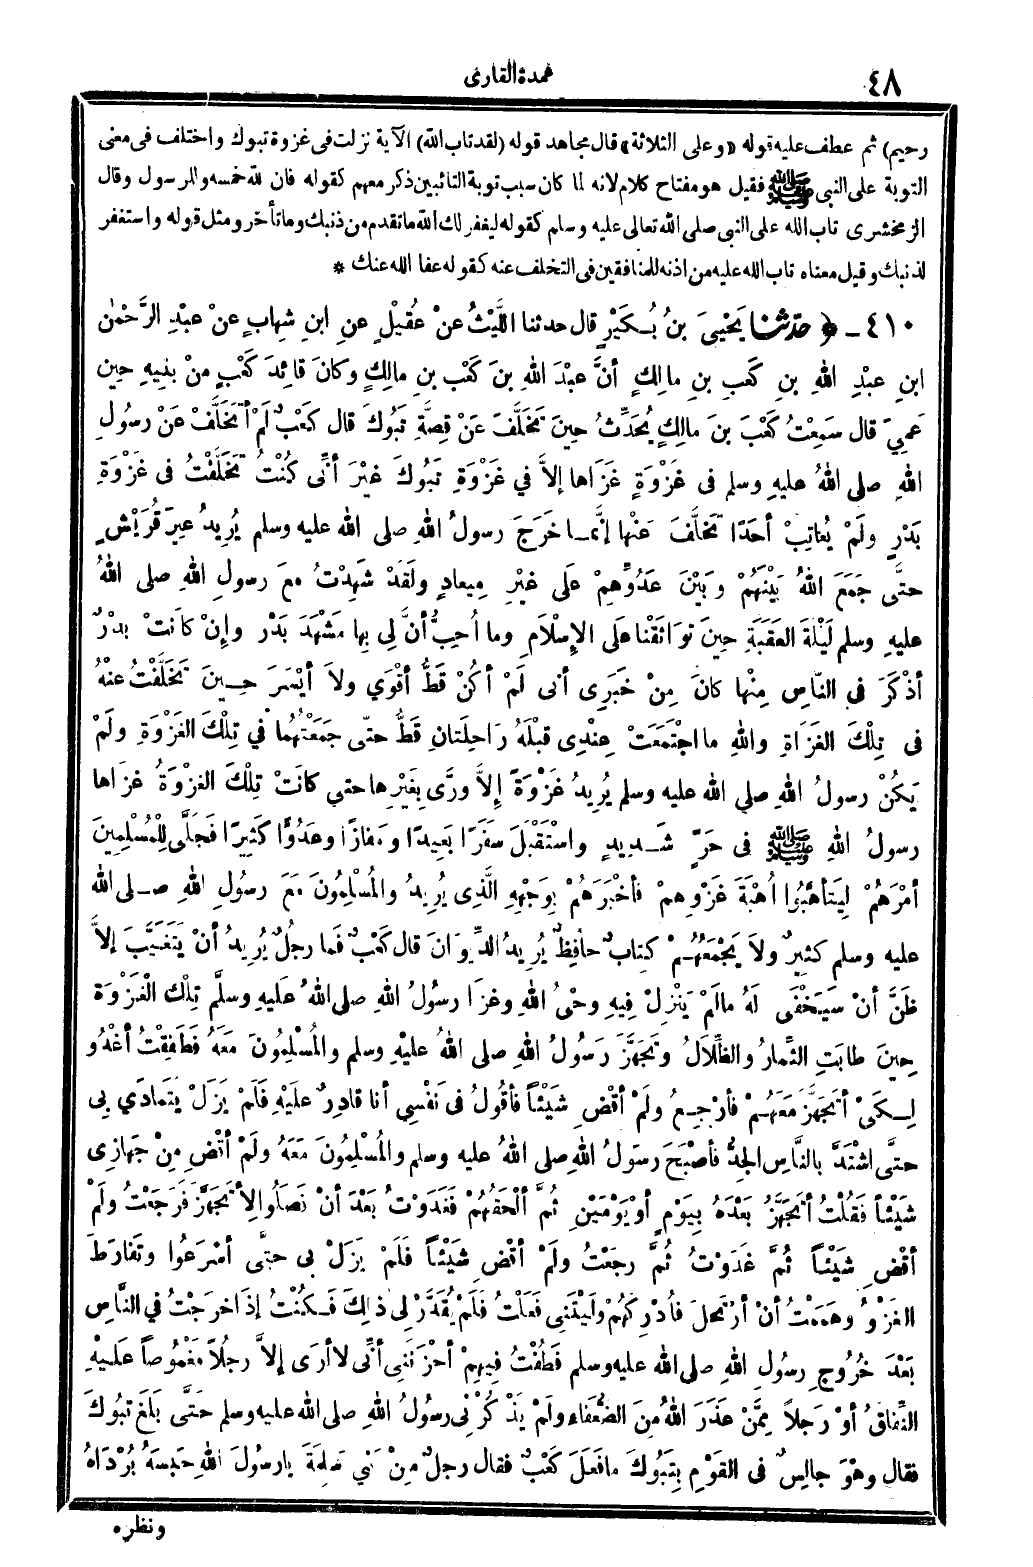 ٤٨
عمدة القارى
رحيم) ثم عطف عليه قوله «وعلى الثلاثة» قال مجاهد قوله (لقد تاب الله) الآية نزلت فى غزوة تبوك واختلف فى معنى
التوبة على النبى ﷺ فقيل هو مفتاح كلام لانه لما كان سبب توبة التائبين ذكر معهم كقوله فان لله خمسه وللرسول وقال
الزمخشرى تاب الله على النبى صلى الله تعالى عليه وسلم كقوله ليغفر لك الله ما تقدم من ذنبك وما تأخر ومثل قوله واستغفر
لذنبك وقيل معناه تاب الله عليه من اذنه للمنافقين فى التخلف عنه كقوله عفا الله عنك *
٤١٠ ـ ﴿ حدثنا يَحْيىَ بنُ بُكَيْرٍ قال حدثنا اللَّيْثُ عنْ عُقَيْلٍ عنِ ابنِ شِهابٍ عنْ عبْدِ الرَّحْمٰن
ابنِ عبْدِ اللهِ بنِ كَعبِ بنِ مالِكٍ أنَّ عبْدَ اللهِ بنَ كَعْبِ بنِ مالِكٍ وكانَ قائِدَ كَعْبٍ منْ بَنيهِ حِينَ
عَمِيَ قال سَمِعْتُ كَعْبَ بنَ مالِكٍ يُحَدِّثُ حِينَ تَخَلَّفَ عَنْ قِصَّةِ تَبُوكَ قال كَعْبٌ لَمْ أتَخَلَّفْ عَنْ رسُولِ
اللهِ صلى اللهُ عليهِ وسلم فى غَزْوَةٍ غَزَاها إلاَّ في غَزْوَةِ تَبُوكَ غيْرَ أنِّى كُنْتُ تَخَلَّفْتُ فى غَزْوَةِ
بَدْرٍ ولَمْ يُعاتِبْ أحَدًا تَخَلَّفَ عَنْها إنَّمـا خَرَجَ رسولُ اللهِ صلى الله عليه وسلم يُرِيدُ عِيرَ قُرَيْشٍ
حتَّى جَمَعَ اللهُ بَيْنَهُمْ وَبَيْنَ عَدُوِّهِمْ عَلَى غيْرِ مِيعادٍ ولَقَدْ شَهِدْتُ معَ رسولِ اللهِ صلى اللهُ
عليهِ وسلم لَيْلَةَ العَقَبَةِ حِينَ تَوَاثَقْنا علَى الإسْلامِ وما أُحِبُّ أنَّ لِى بِها مَشْهَدَ بَدْرٍ وإنْ كانَتْ بدْرٌ
أذْكَرَ فى النّاسِ مِنْها كانَ مِنْ خَبَرِى أنى لَمْ أكُنْ قَطُّ أقْوَي ولاَ أيْسَرَ حـينَ تَخَلَّفْتُ عنْهُ
فى تِلْكَ الغَزَاةِ واللهِ ما اجْتَمَعَتْ عِنْدِى قبْلَهُ رَاحِلَتانِ قَطُّ حتّى جَمَعْتُهُما في تِلْكَ الغَزْوَةِ ولَمْ
يَكُنْ رسولُ اللهِ صلي الله عليه وسلم يُرِيدُ غَزْوَةً إلاَّ ورَّى بِغَيْرِها حتى كانَتْ تِلْكَ الغزْوَةُ غزَاها
رسولُ اللهِ ﷺ فى حَرٍّ شَـديدٍ واسْتَقْبَلَ سفَرًا بَعِيدًا ومَفازًا وعَدُوًّا كَثِيرًا فَجَلَّى لِلْمُسْلِمِينَ
أمْرَهُمْ لِيَتَأهَّبُوا أُهْبَةَ غَزْوِهِمْ فأخْبَرَهُمْ بِوَجْهِهِ الَّذِى يُرِيدُ والمُسْلِمُونَ معَ رسُولِ اللهِ صـلى الله
عليه وسلم كثيرٌ ولاَ يَجْمَعُهُـمْ كِتابٌ حافِظٌ يُرِيدُ الدِّيوَانَ قال كَعْبٌ فَما رجُلٌ يُرِيدُ أنْ يَتَغَيَّبَ إلاَّ
ظَنَّ أنْ سَيَخْفَى لَهُ مالَمْ يَنْزِلْ فِيهِ وحْىُ اللهِ وغزَا رسُولُ اللهِ صلى اللهُ عَليهِ وسلَّم تِلْكَ الْغَزْوَةَ
حِينَ طابَتِ الثِّمارُ والظِّلاَلُ وتَجَهَّزَ رَسُولُ اللهِ صلى اللهُ عليْهِ وسلم والمُسْلِمُونَ معَهُ فَطَفِقْتُ أغْدُو
لِـكَىْ أتَجَهَّزَ مَعَهُـمْ فأرْجِـعُ ولَمْ أقْضِ شَيْئاً فأقُولُ فى نَفْسِي أنا قادِرٌ علَيْهِ فَلَمْ يَزَلْ يَتَمادَي بِى
حتَّى اشْتَدَّ بالنَّاسِ الجِدُّ فأصْبَحَ رسَولُ اللهِ صلى اللهُ عليه وسلم والمُسْلِمُونَ مَعَهُ ولَمْ أقْضِ مِنْ جَهازِى
شَيْئاً فَقُلْتُ أتَجَهَّزُ بعْدَهُ بِيَوْمٍ أوْ يَوْمَيْنِ ثُمَّ ألْحَقُهُمْ فَغَدَوْتُ بَعْدَ أنْ فَصَلُوا لِأتَجَهَّزَ فَرَجَعْتُ ولَمْ
أقْضِ شَيْئاً ثُمَّ غَدَوْتُ ثُمَّ رجَعْتُ ولَمْ أقْضِ شَيْئاً فَلَمْ يَزَلْ بى حتَّى أسْرَعُوا وتَفارَطَ
الغَزْوُ وهَمَمْتُ أنْ أرْتَحِلَ فأُدْرِكَهُمْ ولَيْتَنِى فَعَلْتُ فَلَمْ يُقَدَّرْ لِى ذٰلِكَ فَـكُنْتُ إذَا خرَجْتُ في النَّاسِ
بَعْدَ خُرُوجِ رسولِ اللهِ صلى الله عليه وسلم فَطُفْتُ فِيهِمْ أحْزَنَنِى أنِّى لا أرَى إلاَّ رجُلاً مَغْمُوصاً علَيْهِ
النِّفاقُ أوْ رَجلاً مِمَّنْ عَذَرَ اللهُ مِنَ الضُّعَفاءِ ولَمْ يَذْكُرْنِى رسولُ اللهِ صلى الله عليه وسلم حَتَّى بلَغَ تبُوكَ
فقال وهْوَ جالِسٌ فى القَوْمِ بِتَبُوكَ ما فعَلَ كَعْبٌ فقال رجلٌ مِنْ بَنِي سَلِمَةَ يارسُولَ اللهِ حَبَسَهُ بُرْدَاهُ
ونظره